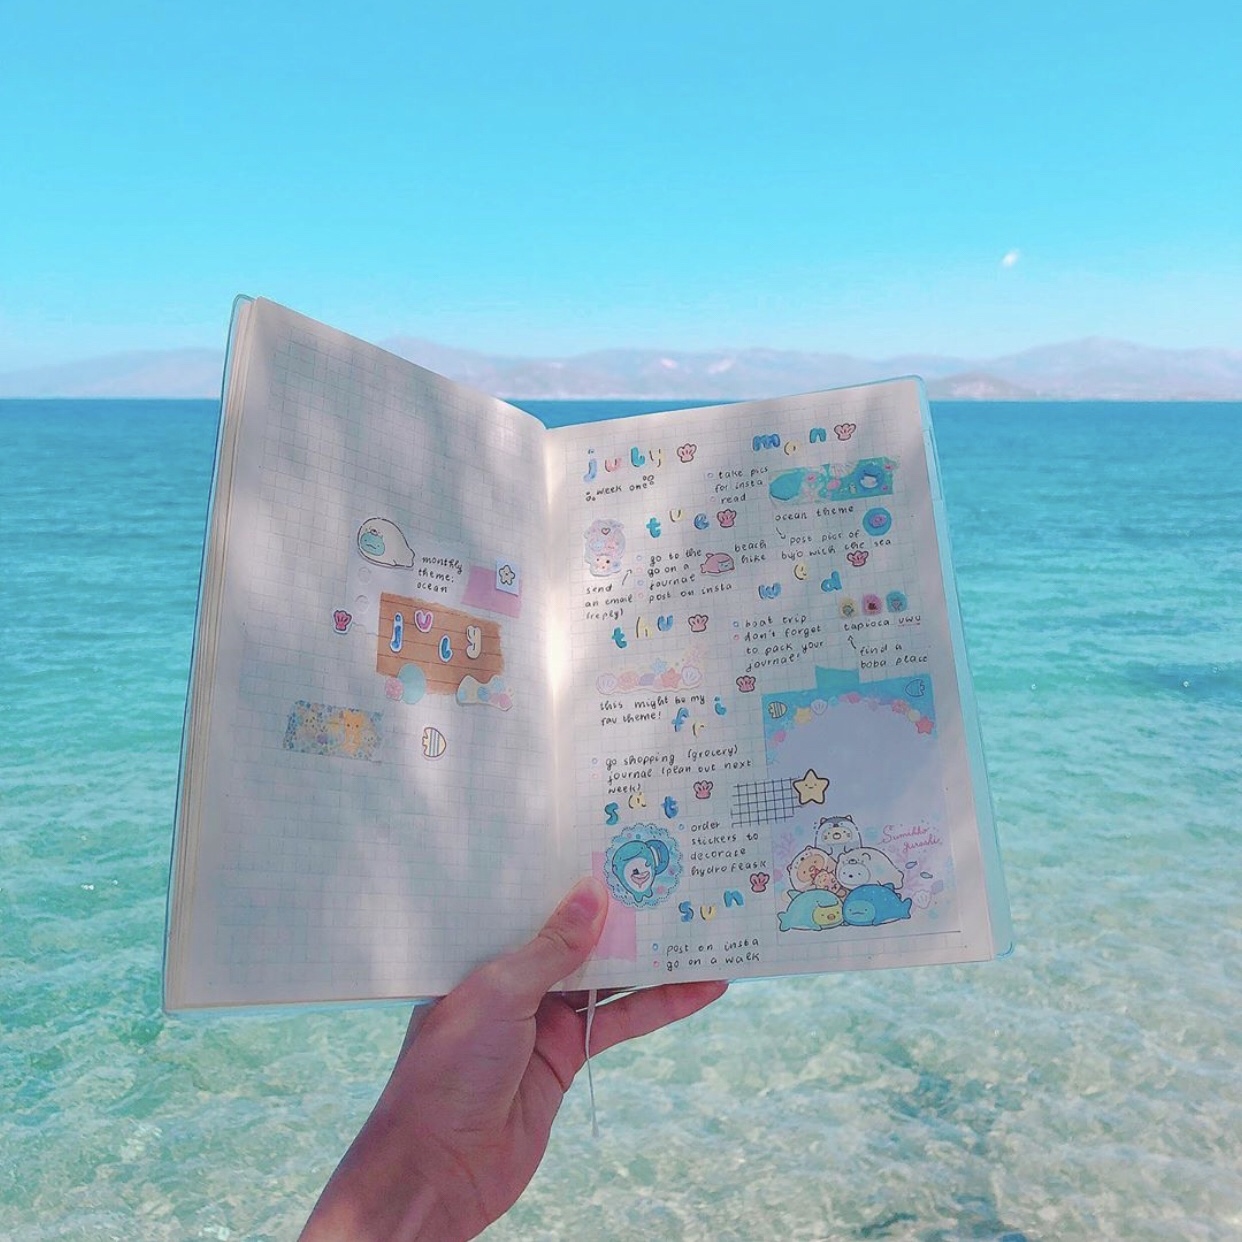 monthly
theme:
ocean
july
july
week one
mon
take pics
for insta
read
ocean theme
post pics of
bujo with the sea
tue
go to the beach
go on a hike
journal
post on insta
send
an email
(reply)
wed
boat trip
don't forget
to pack your
journal!
tapioca uwu
find a
boba place
thu
this might be my
fav theme!
fri
go shopping (grocery)
journal (plan out next
week)
sat
order
stickers to
decorate
hydrofeask
sun
post on insta
go on a walk
Sumikko
gurashi